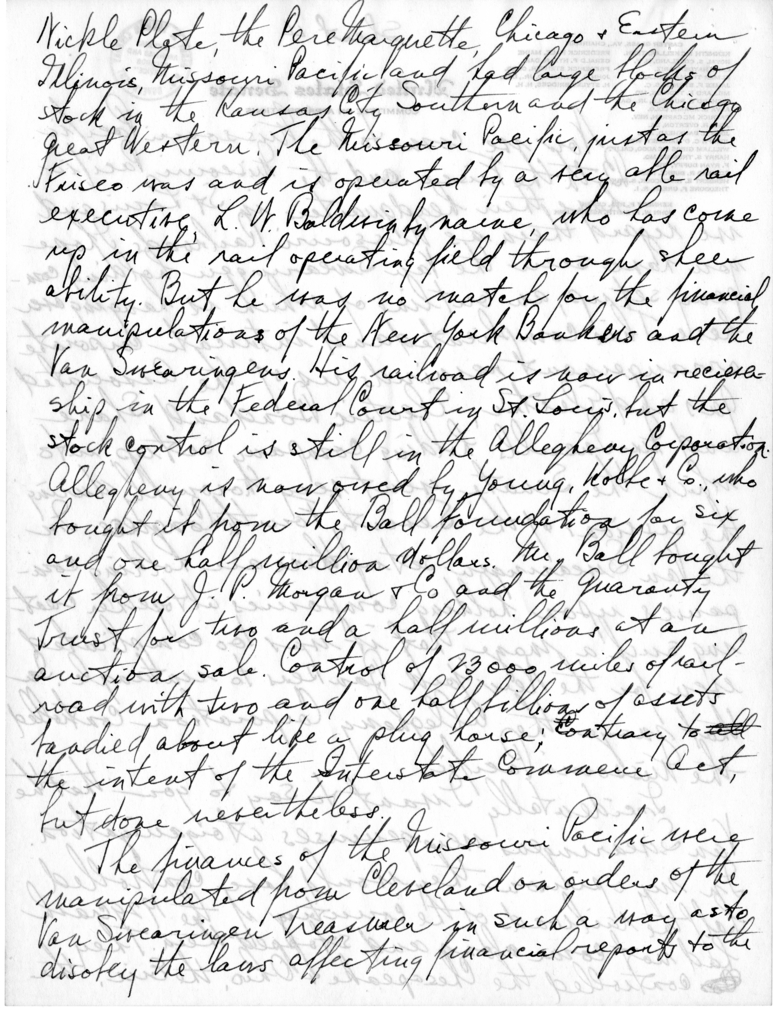 Nickle Plate, the Pere Marquette, Chicago & Eastern
Illinois, Missouri Pacific and had large blocks of
stock in the Kansas City Southern and the Chicago
Great Western. The Missouri Pacific, just as the
Frisco was and is operated by a very able rail
executive, L. W. Baldwin by name, who has come
up in the rail operating field through sheer
ability. But he was no match for the financial
manipulations of the New York Bankers and the
Van Swearingens. His railroad is now in reciever-
ship in the Federal Court in St. Louis, but the
stock control is still in the Allegheny Corporation.
Allegheny is now owed by Young, Kolbe & Co., who
bought it from the Ball foundation for six
and one half million dollars. Mr. Ball bought
it from J. P. Morgan & Co and the Guaranty
Trust for two and a half millions at an
auction sale. Control of 23000 miles of rail-
road with two and one half billions of assets
bandied about like a plug horse; contrary to all
the intent of the Interstate Commerce Act,
but done nevertheless.
The finances of the Missouri Pacific were
manipulated from Cleveland on orders of the
Van Swearingen Treasurer in such a way as to
disobey the laws affecting financial reports to the